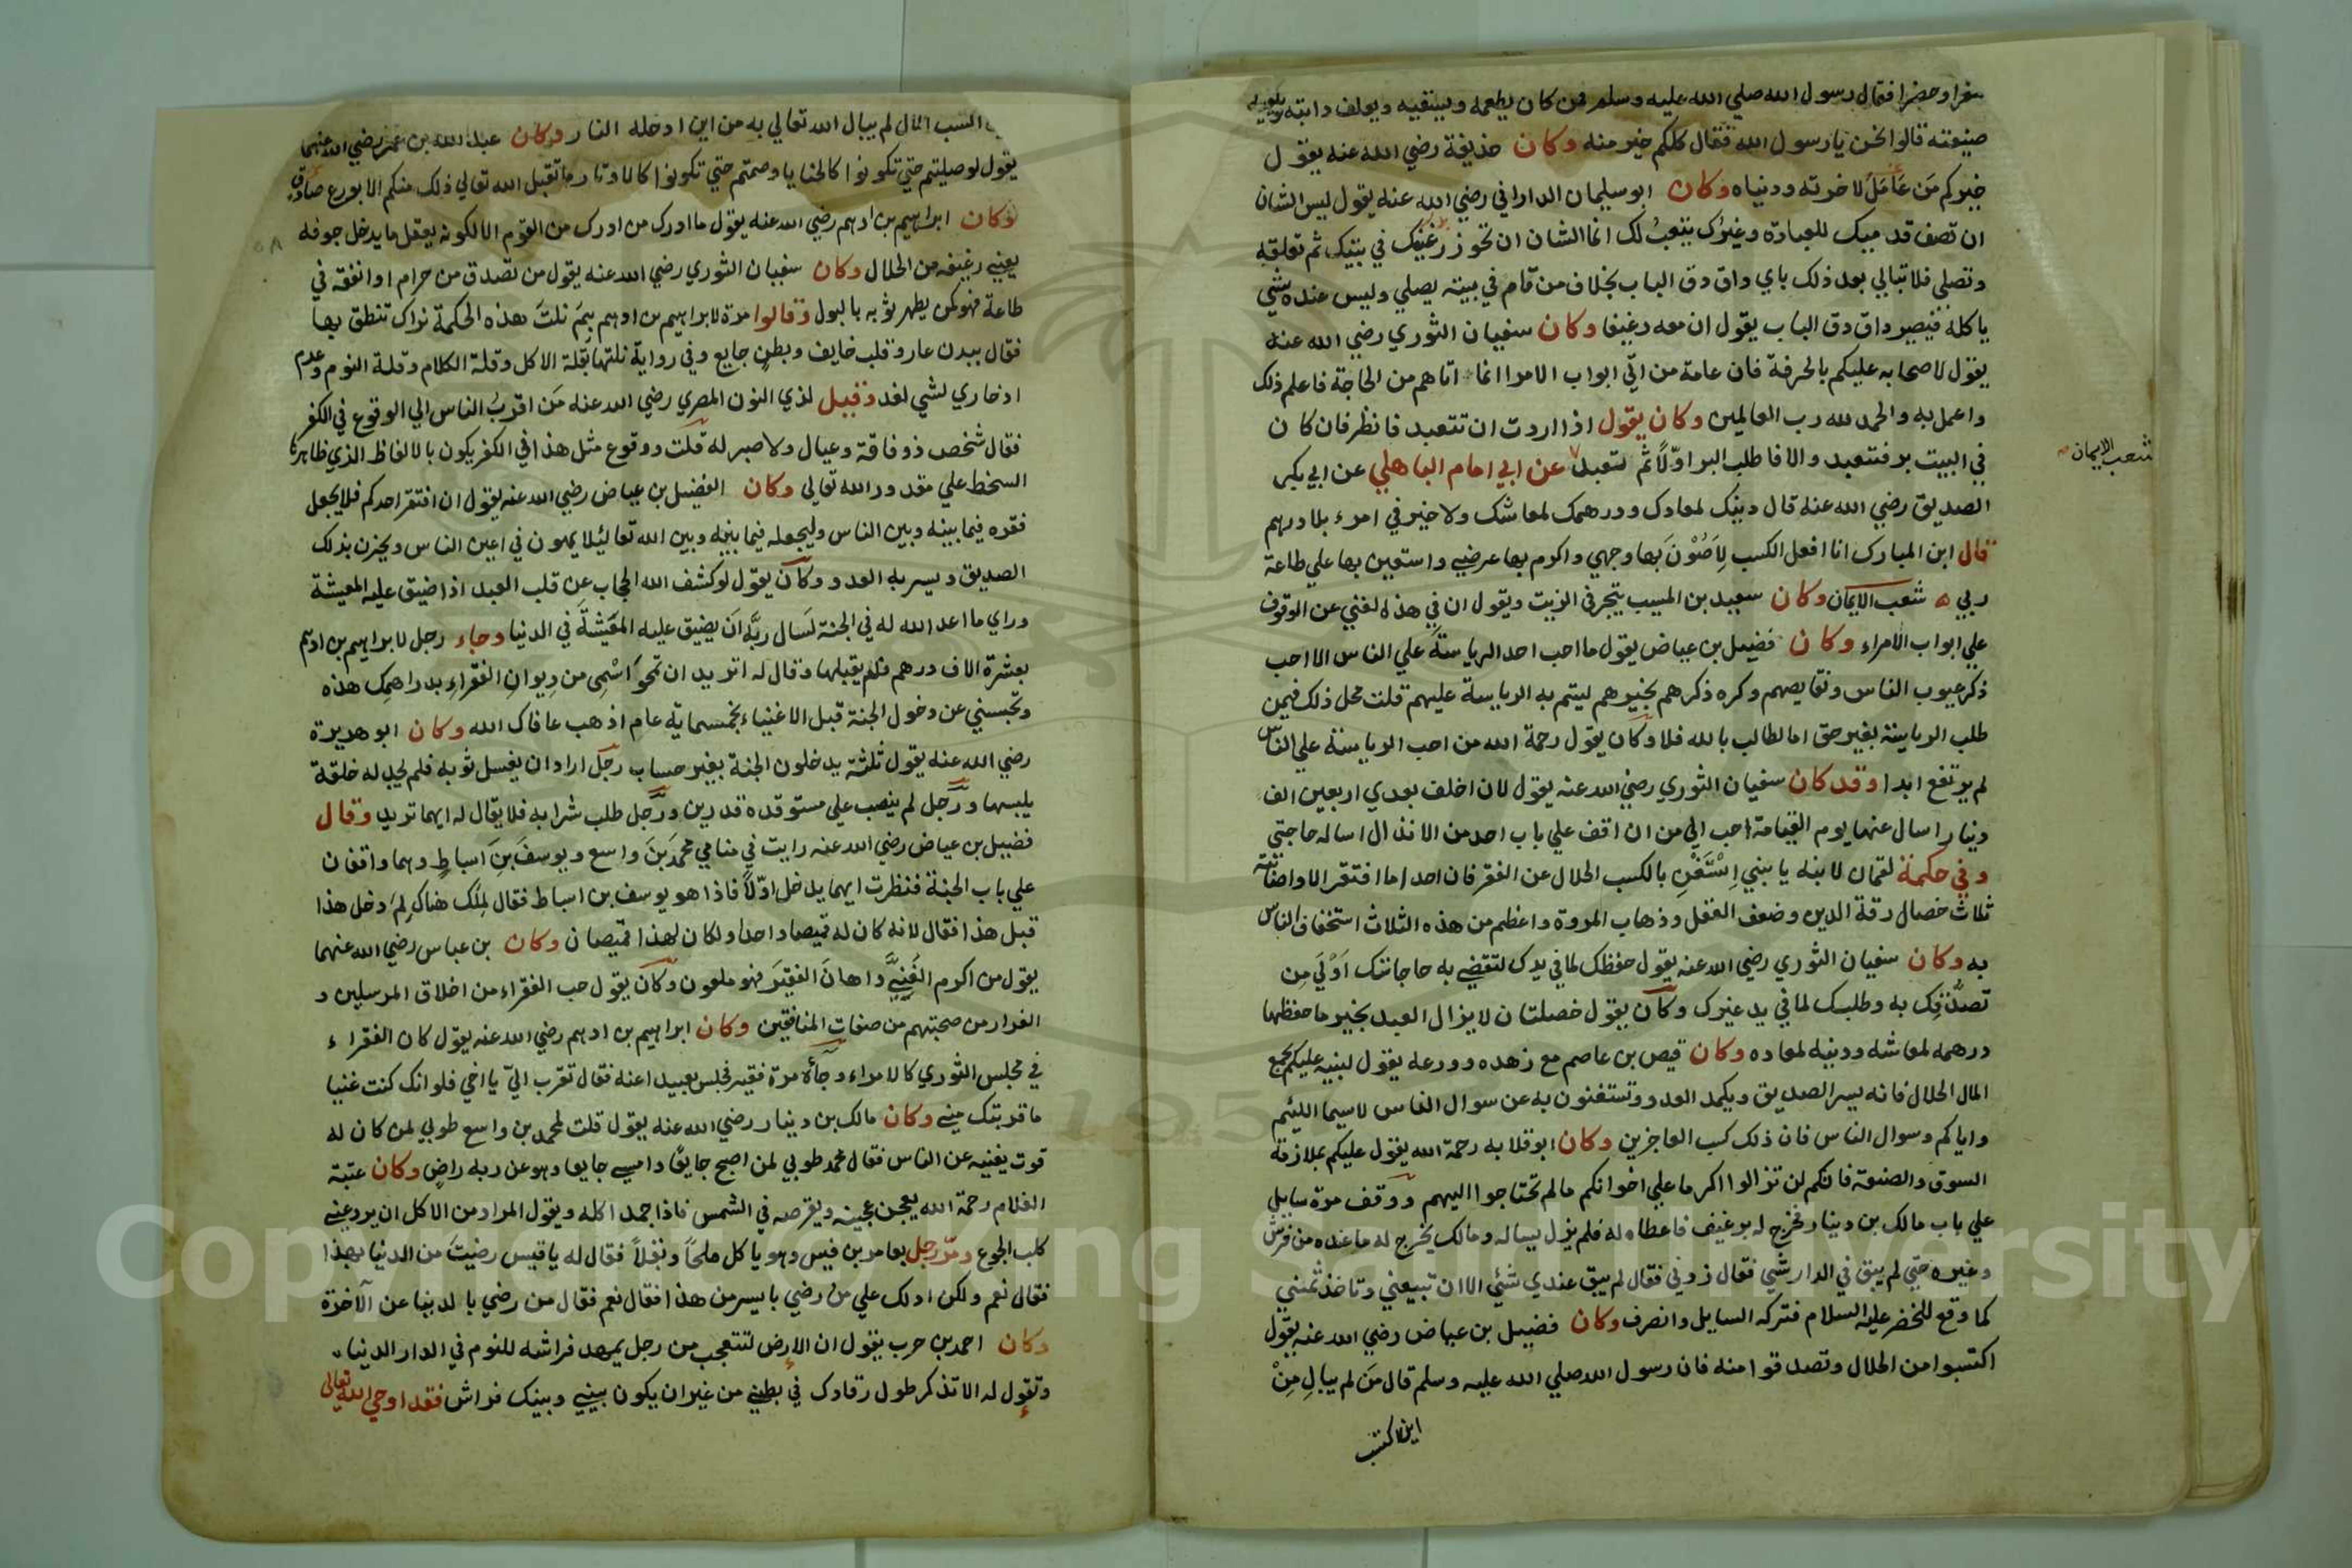 سفرا وحضرا فقال رسول الله صلي الله عليه وسلم فمن كان يطعمه ويسقيه ويعلف دابته ويكفيه
صنيعته قالوا نحن يا رسول الله فقال كلكم خير منه وكان حذيفة رضي الله عنه يقول
خيركم من عامل لاخرته ودنياه وكان ابو سليمان الداراني رضي الله عنه يقول ليس الشان
ان تصف قدميك للعبادة وغيرك يتعب لك انما الشان ان تحوز رغيفك في بيتك ثم تغلقه
وتصلي فلا تبالي بعد ذلك باي داق دق الباب بخلاف من قام في بيته يصلي وليس عنده شي
ياكله فيصير داق دق الباب يقول ان معه رغيفا وكان سفيان الثوري رضي الله عنه
يقول لاصحابه عليكم بالحرفة فان عامة من اتي ابواب الامرا انما اتاهم من الحاجة فاعلم ذلك
واعمل به والحمد لله رب العالمين وكان يقول اذا اردت ان تتعبد فانظر فان كان
في البيت بر فتعبد والا فاطلب البر اولا ثم تعبد عن ابي امام الباهلي عن ابي بكر
الصديق رضي الله عنه قال دينك لمعادك ودرهمك لمعاشك ولا خير في امرء بلا درهم
قال ابن المبارك انا افعل الكسب لاصون بها وجهي واكرم بها عرضي واستعين بها علي طاعة
ربي شعب الايمان وكان سعيد بن المسيب يتجر في الزيت ويقول ان في هذه لغني عن الوقوف
علي ابواب الامراء وكان فضيل بن عياض يقول ما احب احد الرياسة علي الناس الا احب
ذكر عيوب الناس ونقايصهم وكره ذكرهم بخير هم ليتم به الرياسة عليهم قلت محل ذلك فيمن
طلب الرياسة بغير حق اما لطالب بالله فلا وكان يقول رحمة الله من احب الرياسة علي الناس
لم يرتفع ابدا وقد كان سفيان الثوري رضي الله عنه يقول لان اخلف بعدي اربعين الف
دينار اسال عنها يوم القيامة احب الي من ان اقف علي باب احد من الانذال اساله حاجتي
وفي حكمة لقمان لابنه يا بني استغن بالكسب الحلال عن الفقر فان احدا ما افتقر الا واصابته
ثلاث خصال رقة الدين وضعف العقل وذهاب المروة واعظم من هذه الثلاث استخفاف الناس
به وكان سفيان الثوري رضي الله عنه يقول حفظك لما في يدك لتقضي به حاجاتك اولي من
تصدقك به وطلبك لما في يد غيرك وكان يقول خصلتان لا يزال العبد بخير ما حفظها
درهمه لمعاشه ودينه لمعاده وكان قيس بن عاصم مع زهده وورعه يقول لبنيه عليكم بجمع
المال الحلال فانه يسر الصديق ويكمد العدو وتستغنون به عن سوال الناس لا سيما اللئيم
واياكم وسوال الناس فان ذلك كسب العاجزين وكان ابو قلابه رحمة الله يقول عليكم بملازمة
السوق والصنعة فانكم لن تزالوا اكرما علي اخوانكم ما لم تحتاجوا اليهم ووقف مرة سايلي
علي باب مالك بن دينار فخرج له برغيف فاعطاه له فلم يزل يساله ومالك يخرج له ما عنده من فرش
وغيره حتي لم يبق في الدار شي فقال زدني فقال لم يبق عندي شئي الا ان تبيعني وتاخذ ثمنني
كما وقع للخضر عليه السلام فتركه السايل وانصرف وكان فضيل بن عياض رضي الله عنه يقول
اكتسبوا من الحلال وتصدقوا منه فان رسول الله صلي الله عليه وسلم قال من لم يبال من
اين اكتسب
شعب الايمان
اكتسب المال لم يبال الله تعالي به من اين ادخله النار وكان عبد الله بن عمر رضي الله عنهما
يقول لو صليتم حتي تكونوا كالحنايا وصمتم حتي تكونوا كالاوتار ما تقبل الله تعالي ذلك منكم الا بورع صادق
وكان ابراهيم بن ادهم رضي الله عنه يقول ما ادرك من ادرك من القوم الا لكونه يعقل ما يدخل جوفه
يعني رغيفه من الحلال وكان سفيان الثوري رضي الله عنه يقول من تصدق من حرام او انفقه في
طاعة فهو كمن يطهر ثوبه بالبول وقالوا مرة لابراهيم بن ادهم بم نلت هذه الحكمة نراك تنطق بها
فقال ببدن عار وقلب خايف وبطن جايع وفي رواية نلتها بقلة الاكل وقلة الكلام وقلة النوم وعدم
ادخاري لشي لغد وقيل لذي النون المصري رضي الله عنه من اقرب الناس الي الوقوع في الكفر
فقال شخص ذو فاقة وعيال ولا صبر له قلت ووقوع مثل هذا في الكفر يكون بالالفاظ الذي ظاهرها
السخط علي مقدور الله تعالي وكان الفضيل بن عياض رضي الله عنه يقول ان افتقر احدكم فلا يجعل
فقره فيما بينه وبين الناس وليجعله فيما بينه وبين الله تعالي لئلا يهون في اعين الناس ويحزن بذلك
الصديق ويسر به العدو وكان يقول لو كشف الله الحجاب عن قلب العبد اذا ضيق عليه المعيشة
وراي ما اعد الله له في الجنة لسال ربه ان يضيق عليه المعيشة في الدنيا وجاء رجل لابراهيم بن ادهم
بعشرة الاف درهم فلم يقبلها وقال له اتريد ان تمحو اسمي من ديوان الفقراء بدراهمك هذه
وتحبسني عن دخول الجنة قبل الاغنياء بخمسماية عام اذهب عافاك الله وكان ابو هريرة
رضي الله عنه يقول ثلثة يدخلون الجنة بغير حساب رجل اراد ان يغسل ثوبه فلم يجد له خلقة
يلبسها ورجل لم ينصب علي مستوقده قدرين ورجل طلب شرابه فلا يقال له ايهما تريد وقال
فضيل بن عياض رضي الله عنه رايت في منامي محمد بن واسع ويوسف بن اسباط وهما واقفان
علي باب الجنة فنظرت ايهما يدخل اولا فاذا هو يوسف بن اسباط فقال لملك هناك لم دخل هذا
قبل هذا فقال لانه كان له قميصا واحدا ولكان لهذا قميصان وكان بن عباس رضي الله عنهما
يقول من اكرم الغني واهان الفقير فهو ملعون وكان يقول حب الفقراء من اخلاق المرسلين و
الفرار من صحبتهم من صفات المنافقين وكان ابراهيم بن ادهم رضي الله عنه يقول كان الفقراء
في مجلس الثوري كالامراء وجآءه مرة فقير فجلس بعيدا عنه فقال تقرب الي يا اخي فلو انك كنت غنيا
ما قربتك مني وكان مالك بن دينار رضي الله عنه يقول قلت لمحمد بن واسع طوبي لمن كان له
قوت يغنيه عن الناس فقال محمد طوبي لمن اصبح جايعا وامسي جايعا وهو عن ربه راض وكان عتبة
الغلام رحمة الله يعجن عجينه ويقرصه في الشمس فاذا جمد اكله ويقول المراد من الاكل ان يرد عني
كلب الجوع ومر رجل بعامر بن قيس وهو ياكل ملحا وبقلا فقال له يا قيس رضيت من الدنيا بهذا
فقال نعم ولكن ادلك علي من رضي بايسر من هذا فقال نعم فقال من رضي بالدنيا عن الآخرة
وكان احمد بن حرب يقول ان الارض لتتعجب من رجل يمهد فراشه للنوم في الدار الدنيا
وتقول له الا تذكر طول رقادك في بطني من غير ان يكون بيني وبينك فراش فقد اوحي الله تعالي
Copyright © King Saud University